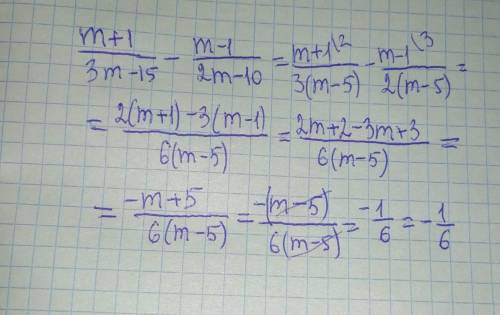 (m+1)/(3m-15) - (m-1)/(2m-10) = (m+1\2)/(3(m-5)) - (m-1\3)/(2(m-5)) =
= (2(m+1)-3(m-1))/(6(m-5)) = (2m+2-3m+3)/(6(m-5)) =
= (-m+5)/(6(m-5)) = (-(m-5))/(6(m-5)) = (-1)/6 = -1/6